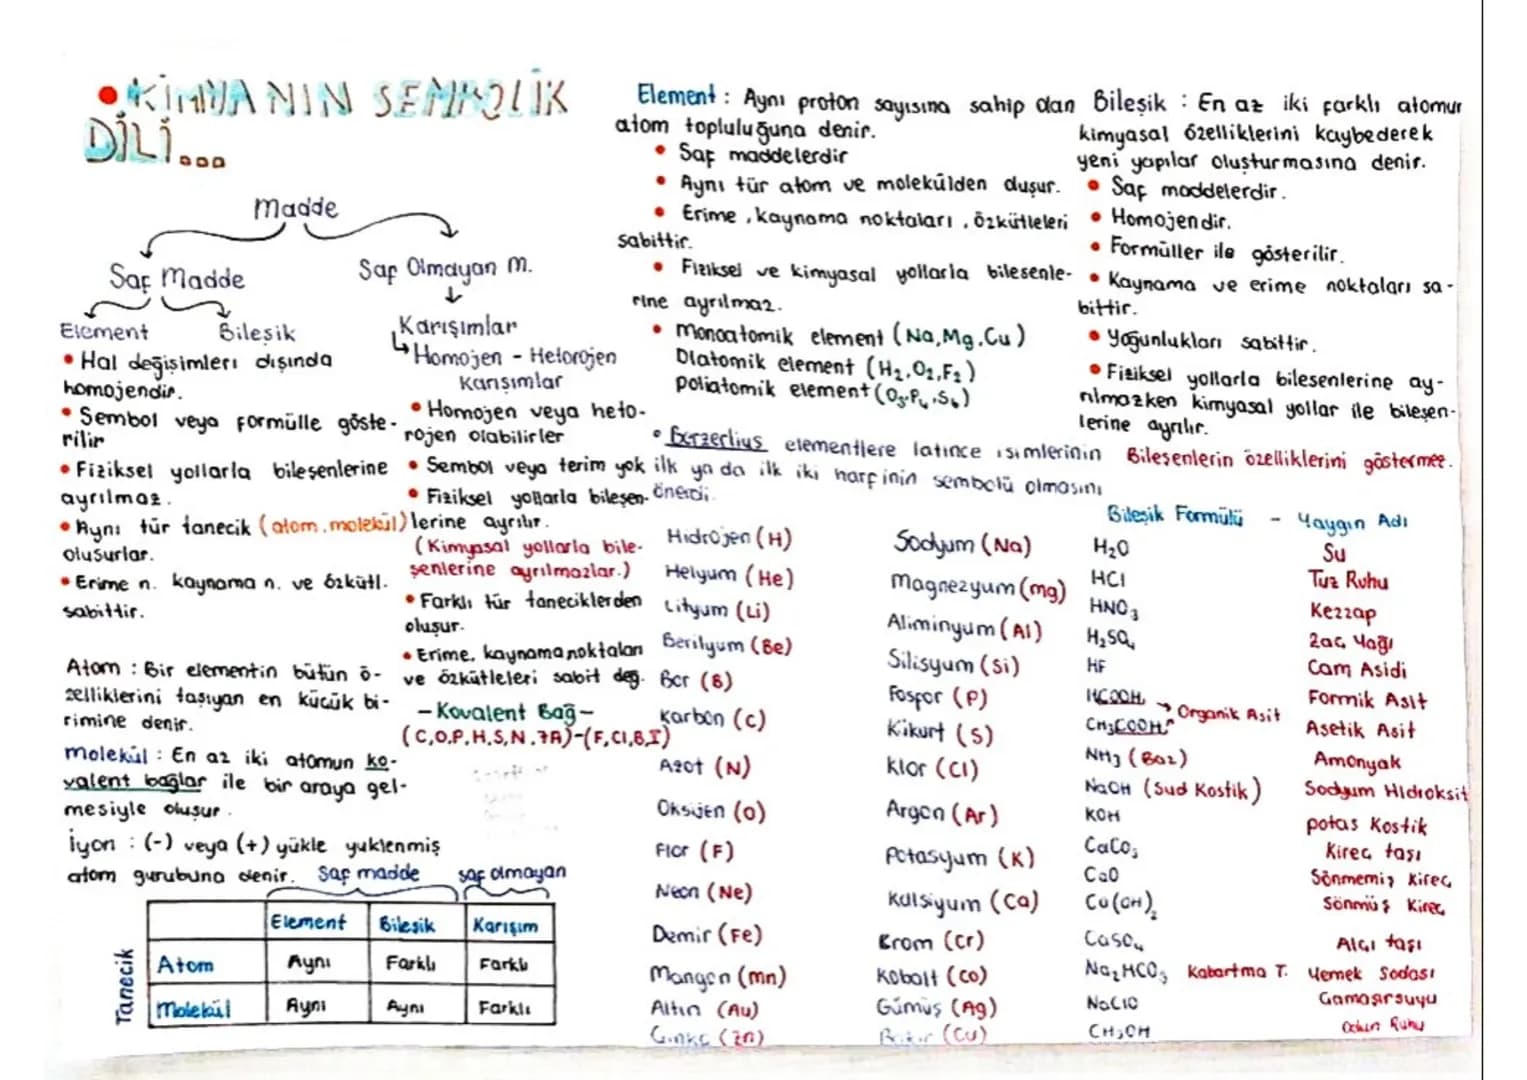 •KİMYANIN SEMBOLİK
DİLİ...
Madde
Saf Madde
Saf Olmayan M.
Element
Bileşik
Karışımlar
Homojen - Heterojen
Karışımlar
• Hal değişimleri dışında
homojendir.
• Sembol veya formülle göste-
rilir
• Fiziksel yollarla bileşenlerine
ayrılmaz.
• Aynı tür tanecik (atom.molekül)
oluşurlar.
• Erime n. kaynama n. ve özkütl.
sabittir.
• Homojen veya hete-
rojen olabilirler
• Sembol veya terim yok
• Fiziksel yollarla bileşen-
lerine ayrılır.
(Kimyasal yollarla bile-
şenlerine ayrılmazlar.)
• Farklı tür taneciklerden
oluşur.
• Erime, kaynama noktaları
ve özkütleleri sabit değ.
- Kovalent Bağ -
(C,O,P,H,S,N.7A)-(F,Cl,B,I)
Atom : Bir elementin bütün ö-
zelliklerini taşıyan en küçük bi-
rimine denir.
Molekül : En az iki atomun ko-
valent bağlar ile bir araya gel-
mesiyle oluşur.
İyon : (-) veya (+) yükle yüklenmiş
atom gurubuna denir.
Saf madde
saf olmayan
Element Bileşik Karışım
Tanecik
Atom Aynı Farklı Farklı
Molekül Aynı Aynı Farklı
Element : Aynı proton sayısına sahip olan
atom topluluğuna denir.
• Saf maddelerdir
• Aynı tür atom ve molekülden oluşur.
• Erime, kaynama noktaları, özkütleleri
sabittir.
• Fiziksel ve kimyasal yollarla bilesenle-
rine ayrılmaz.
• Monoatomik element (Na,Mg,Cu)
Diatomik element (H₂,O₂,F₂)
poliatomik element (O₃.P₄.S₈)
• Berzerlius elementlere latince isimlerinin
ilk ya da ilk iki harfinin sembolü olmasını
önerdi.
Hidrojen (H)
Helyum (He)
Lityum (Li)
Berilyum (Be)
Bor (B)
Karbon (C)
Azot (N)
Oksijen (O)
Flor (F)
Neon (Ne)
Demir (Fe)
Mangan (mn)
Altın (Au)
Çinko (Zn)
Sodyum (Na)
Magnezyum (mg)
Aliminyum (Al)
Silisyum (Si)
Fosfor (P)
Kükurt (S)
Klor (Cl)
Argon (Ar)
Potasyum (K)
Kalsiyum (Ca)
Krom (Cr)
Kobalt (Co)
Gümüş (Ag)
Bakır (Cu)
Bileşik : En az iki farklı atomun
kimyasal özelliklerini kaybederek
yeni yapılar oluşturmasına denir.
• Saf maddelerdir.
• Homojendir.
• Formüller ile gösterilir.
• Kaynama ve erime noktaları sa-
bittir.
• Yoğunlukları sabittir.
• Fiziksel yollarla bilesenlerine ay-
rılmazken kimyasal yollar ile bileşen-
lerine ayrılır.
Bileşenlerin özelliklerini göstermez.
Bileşik Formülü - Yaygın Adı
H₂O Su
HCl Tuz Ruhu
HNO₃ Kezzap
H₂SO₄ Zaç Yağı
HF Cam Asidi
HCOOH Formik Asit
→ Organik Asit
CH₃COOH Asetik Asit
NH₃ (Baz) Amonyak
NaOH (Sud Kostik) Sodyum Hidroksit
KOH potas Kostik
CaCO₃ Kireç taşı
CaO Sönmemiş Kireç
Ca(OH)₂ Sönmüş Kireç
CaSO₄ Alçı taşı
Na₂HCO₃ Kabartma T. Yemek Sodası
NaClO Çamaşırsuyu
CH₃OH Odun Ruhu